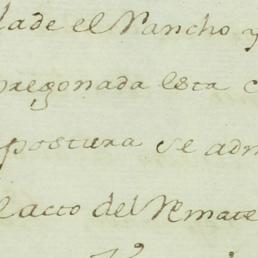 lade el Rancho y
pregonada esta c
postura se adm
el acto del Remate